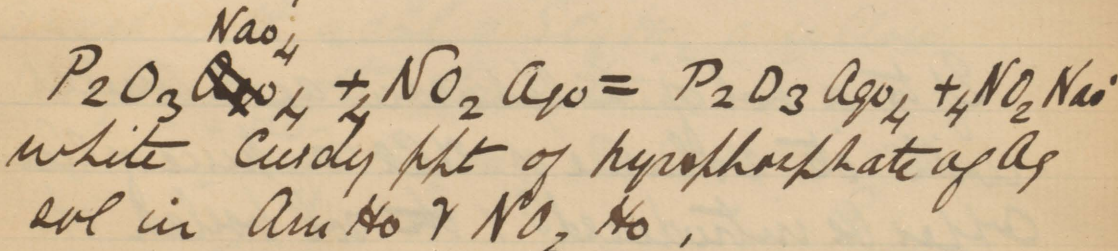 Nao₄
P₂O₃ Ago₄ + ₄NO₂ Ago = P₂O₃ Ago₄ + ₄NO₂ Nao
white Curdy ppt of pyrophosphate of Ag
sol in Am Ho & NO₂ Ho,